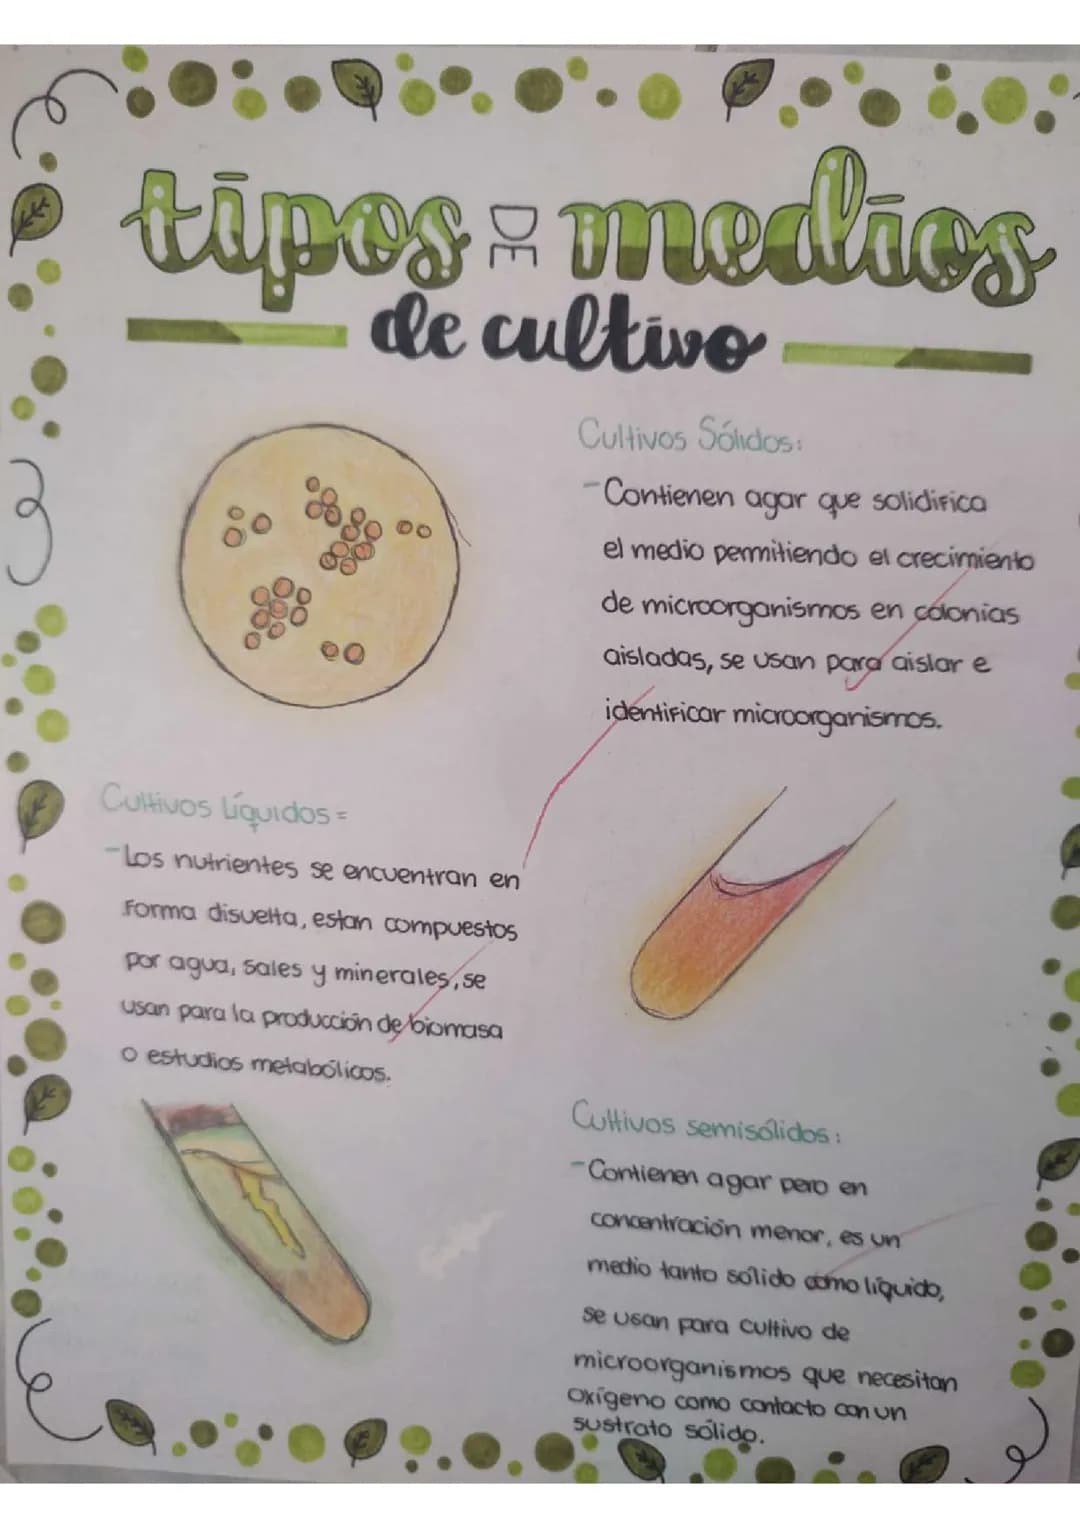 tipos DE medios
de cultivo
Cultivos Sólidos:
-Contienen agar que solidifica
el medio permitiendo el crecimiento
de microorganismos en colonias
aisladas, se usan para aislar e
identificar microorganismos.
Cultivos Líquidos=
-Los nutrientes se encuentran en
forma disuelta, estan compuestos
por agua, sales y minerales, se
usan para la producción de biomasa
o estudios metabólicos.
Cultivos semisólidos:
-Contienen agar pero en
concentración menor, es un
medio tanto sólido como líquido,
se usan para cultivo de
microorganismos que necesitan
oxígeno como contacto con un
sustrato sólido.